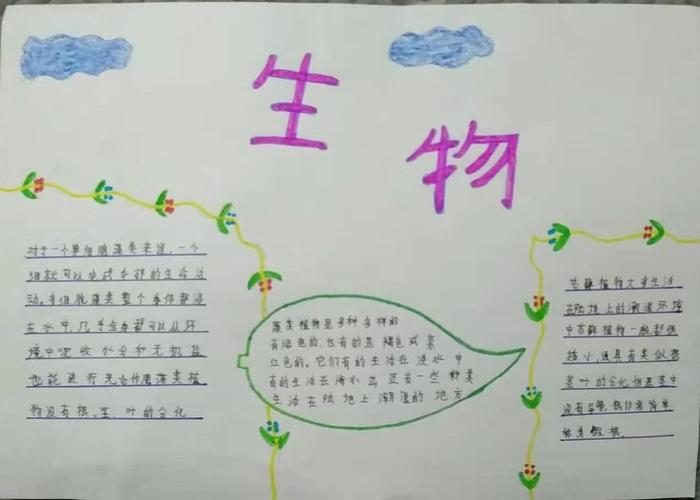 生物
对于一个单细胞藻类来说,一个
细胞就可以完成全部的生命活
动,多细胞藻类整个身体都浸
在水中,几乎全身都可以从环
境中吸收水分和无机盐
也能进行光合作用藻类植
物没有根、茎、叶的分化
藻类植物是多种多样的
有绿色的,也有的是褐色或紫
红色的,它们有的生活在淡水中
有的生活在海水 还有一些种类
生活在陆地上潮湿的地方
苔藓植物大多生活
在陆地上的潮湿环境
中苔藓植物一般都很
矮小,通具有类似茎
茎叶的分化,但是茎中
没有导管,根非常简单
称为假根.